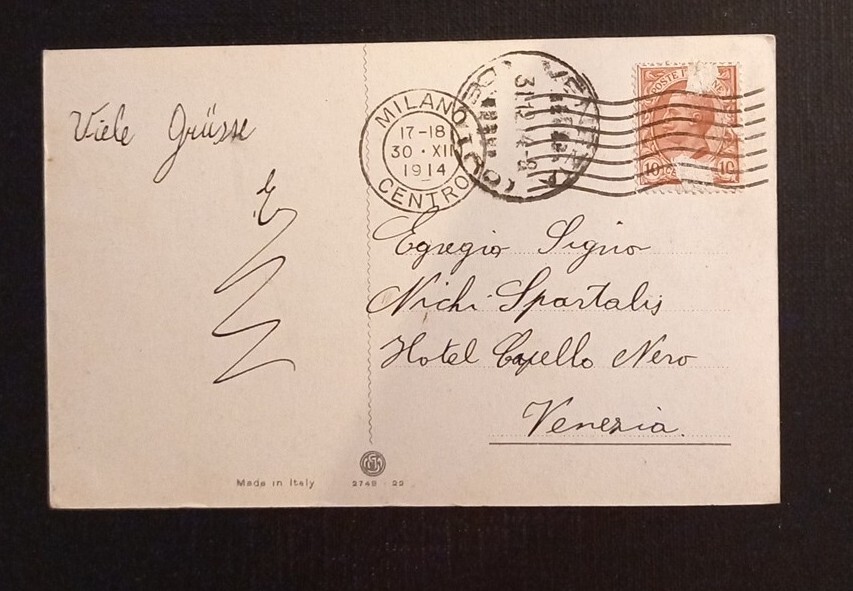 Viele Grüsse
E
MILANO
17-18
30 · XII
1914
CENTRO
VENEZIA
31.12.14-8
POSTE
10 10
Egregio Signo
Nichi Spartalis
Hotel Capello Nero
Venezia.
Made in Italy
2749 - 22